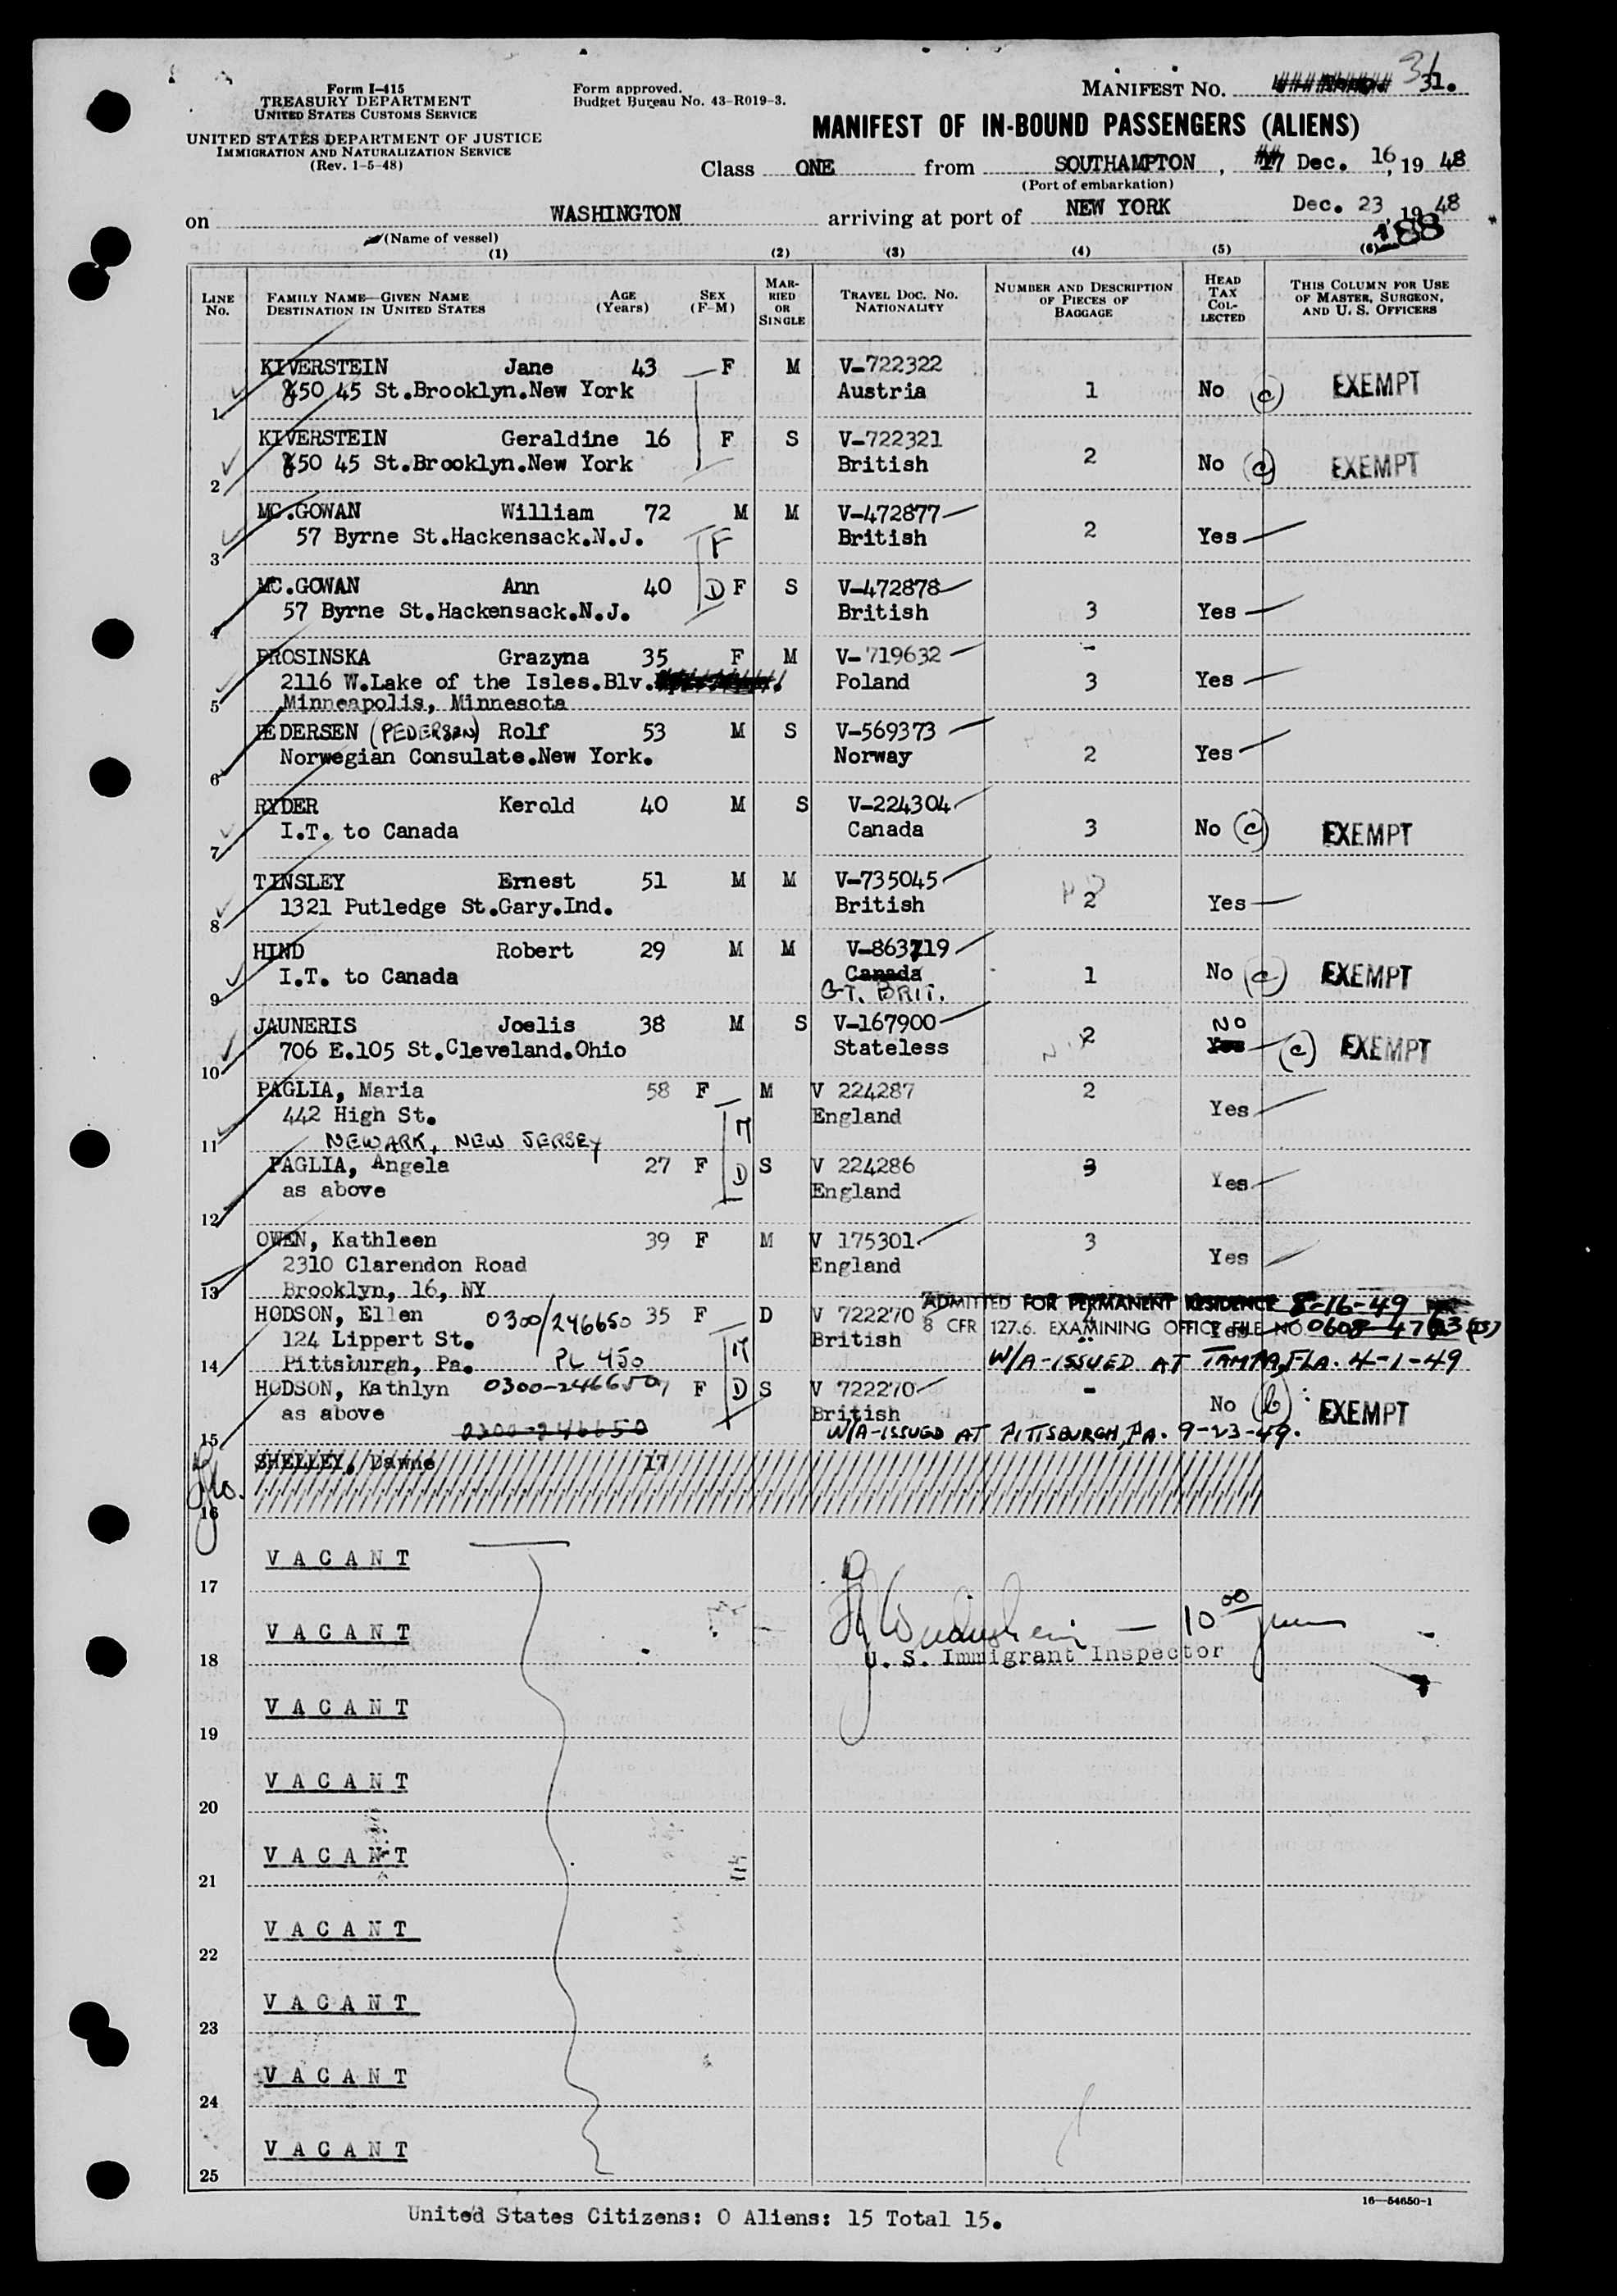 Form I-415
TREASURY DEPARTMENT
UNITED STATES CUSTOMS SERVICE
UNITED STATES DEPARTMENT OF JUSTICE
IMMIGRATION AND NATURALIZATION SERVICE
(Rev. 1-5-48)
Form approved.
Budget Bureau No. 43-R019-3.
MANIFEST NO. 31.
31
MANIFEST OF IN-BOUND PASSENGERS (ALIENS)
Class ONE from SOUTHAMPTON, 17 Dec. 16, 19 48
(Port of embarkation)
on WASHINGTON arriving at port of NEW YORK Dec. 23, 19 48
(Name of vessel)
188
(1) (2) (3) (4) (5) (6)
LINE No. FAMILY NAME—GIVEN NAME DESTINATION IN UNITED STATES AGE (Years) SEX (F-M) MARRIED OR SINGLE TRAVEL DOC. NO. NATIONALITY NUMBER AND DESCRIPTION OF PIECES OF BAGGAGE HEAD TAX COLLECTED THIS COLUMN FOR USE OF MASTER, SURGEON, AND U. S. OFFICERS
KIVERSTEIN Jane 43 F M V-722322
850 45 St.Brooklyn.New York Austria 1 No (c) EXEMPT
1
KIVERSTEIN Geraldine 16 F S V-722321
850 45 St.Brooklyn.New York British 2 No (c) EXEMPT
2
MC.GOWAN William 72 M M V-472877
57 Byrne St.Hackensack.N.J. F British 2 Yes
3
MC.GOWAN Ann 40 D F S V-472878
57 Byrne St.Hackensack.N.J. British 3 Yes
4
PROSINSKA Grazyna 35 F M V-719632
2116 W.Lake of the Isles.Blv. Poland 3 Yes
Minneapolis, Minnesota
5
PEDERSEN (PEDERSEN) Rolf 53 M S V-569373
Norwegian Consulate.New York. Norway 2 Yes
6
RYDER Kerold 40 M S V-224304
I.T. to Canada Canada 3 No (c) EXEMPT
7
TINSLEY Ernest 51 M M V-735045
1321 Putledge St.Gary.Ind. British 2 Yes
8
HIND Robert 29 M M V-863719
I.T. to Canada Canada 1 No (c) EXEMPT
GT. BRIT.
9
JAUNERIS Joelis 38 M S V-167900 No
706 E.105 St.Cleveland.Ohio Stateless 2 Yes (c) EXEMPT
10
PAGLIA, Maria 58 F M V 224287 2
442 High St. M England Yes
NEWARK, NEW JERSEY
11
PAGLIA, Angela 27 F D S V 224286 3
as above England Yes
12
OWEN, Kathleen 39 F M V 175301 3
2310 Clarendon Road England Yes
Brooklyn, 16, NY
13
HODSON, Ellen 0300/246650 35 F D V 722270 ADMITTED FOR PERMANENT RESIDENCE 8-16-49
124 Lippert St. M British 8 CFR 127.6. EXAMINING OFFICE FILE NO. Yes
Pittsburgh, Pa. PL 450 W/A-ISSUED AT TAMPA, FLA. 4-1-49
14
HODSON, Kathlyn 0300-246650 7 F D S V 722270 - No (b) EXEMPT
as above British
0300-246650 W/A-ISSUED AT PITTSBURGH, PA. 9-23-49.
15
SHELLEY, Dawne 17
16
VACANT
17
VACANT 10 00
18 U. S. Immigrant Inspector
VACANT
19
VACANT
20
VACANT
21
VACANT
22
VACANT
23
VACANT
24
VACANT
25
16—54650-1
United States Citizens: 0 Aliens: 15 Total 15.